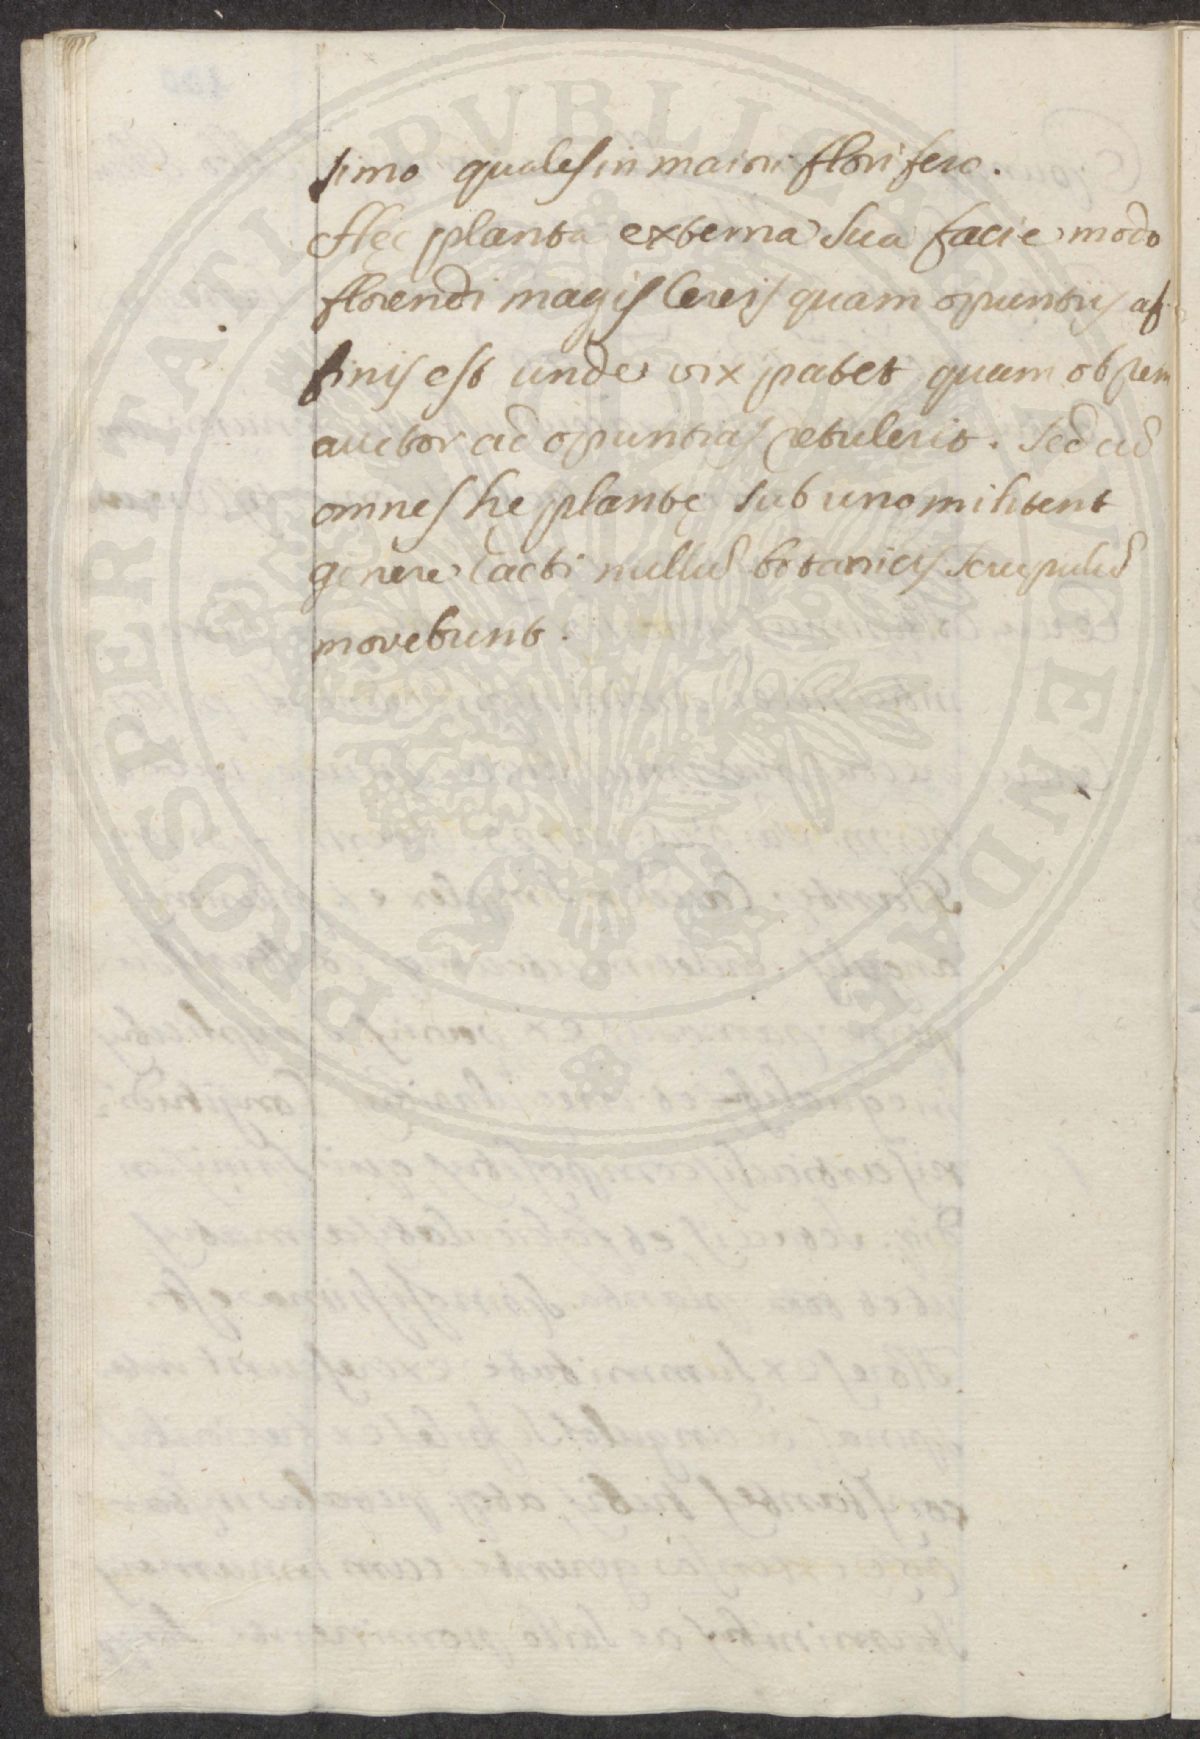 simo quales in maiori florifero.
Hęc planta externa sua facie modo
florendi magis Cereis quam opuntijs af-
finis est unde vix patet quam ob rem
auctor ad opuntias retulerit. Sed cū
omnes hę plantę sub uno militent
genere Cacti nullū botanicis scrupulū
movebunt.
PROSPERITATI PUBLICAE AUGENDAE